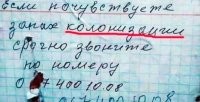 если почувствуете
запах колонизации
срочно звоните
по номеру
740010.08